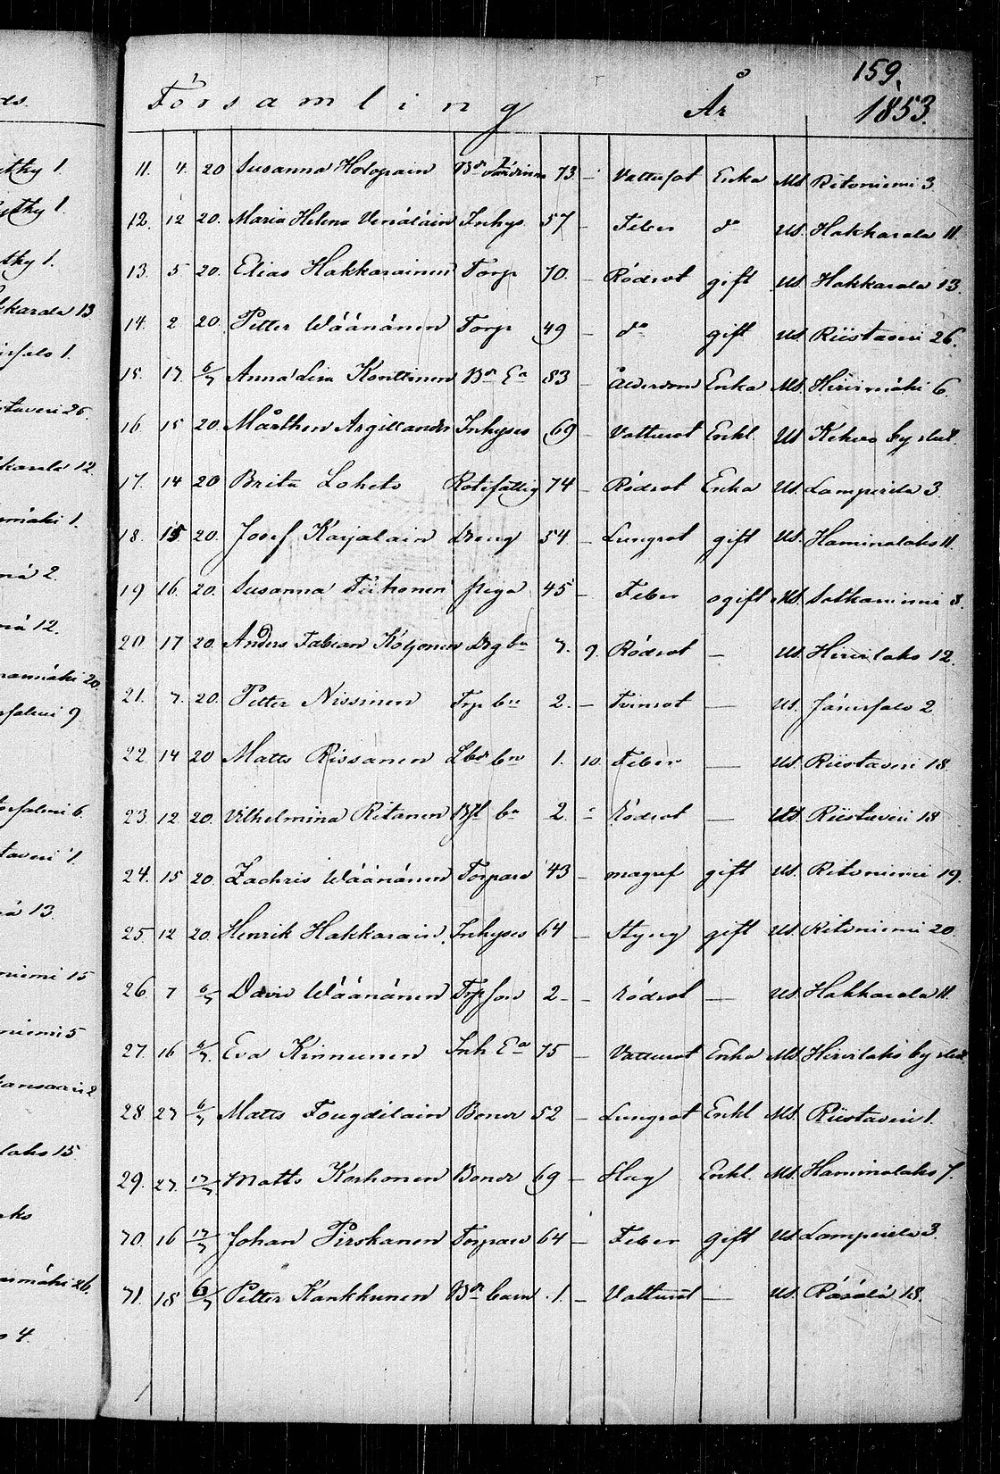 159.
Församling År 1853.
11. 4. 20 Susanna Holopain 73 - Vattusot Enka Ms. Ritoniemi 3.
12. 12 20. Maria Helena Venäläin Inhys 57 - Feber do Us. Hakkarala 11.
13. 5 20. Elias Hakkarainen Torp 70. - Rödsot gift Us. Hakkarala 13.
14. 2. 20. Petter Wäänänen Torp 49 - do gift Us. Riistaveri 26.
15. 17. 6/7 Anna Lisa Konttinen Bd Ea 83 - Ålderdom Enka Ms. Hirvimäki 6.
16. 15 20. Mårthen Argillander Inhyses 69 - Vattusot Enkl. Us Kehvo by
17. 14 20 Brita Loheto Rotefattig 74 - Rödsot Enka Us. Lamperila 3.
18. 15 20. Josef Karjalain dreng 54 - Lungsot gift Us. Haminalaks 11.
19 16. 20. Susanna Tiihonen piga 45 - Feber ogift Ms. Sotkaniemi 8.
20 17 20. Anders Fabian Koljonen Drg bn 7. 9. Rödsot — Us. Hirvilaks 12.
21. 7. 20. Petter Nissinen Trp bn 2. - Tvinsot — Us. Jänissalo 2
22 14 20 Matts Rissanen bn 1. 10 Feber — Us. Riistaveri 18.
23. 12 20. Vilhelmina Ritanen bn 2. - rödsot — Us. Riistaveri 18
24. 15 20 Zachris Wäänänen Torpare 43 - magref gift Us. Ritoniemi 19.
25 12 20. Henrik Hakkarain. Inhyses 64 - Styng gift Us. Ritoniemi 20.
26 7 6/7 David Wäänänen Trp son 2 - rödsot — Us. Hakkarala 11.
27. 16 6/7. Eva Kinnunen Inh Ea 75 - Vattusot Enka Ms. Hirvilaks by
28 27 6/7 Matts Tougdilain Bonde 52 - Lungsot Enkl Ms. Riistaveri 1.
29. 27. 17/7 Matts Korhonen Bonde 69 - Slag Enkl. Ms. Haminalaks 7.
70. 16 17/7 Johan Pirskanen Torpare 64 - Feber gift Us. Lamperila 3.
71. 18 6/7 Petter Kankkunen Bd barn 1. - Vattusot — Us. Räsälä 18.